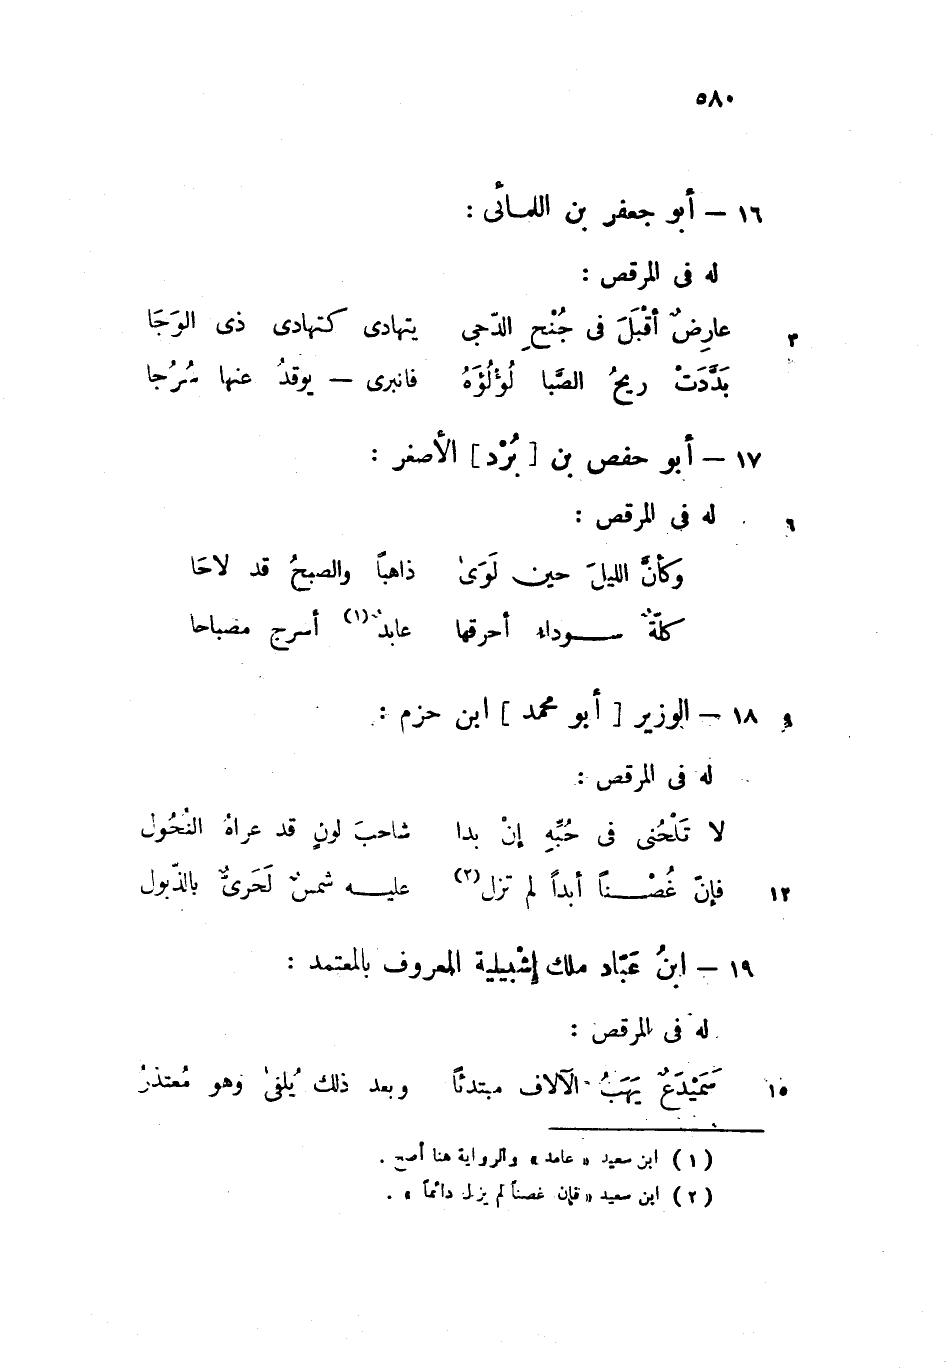 ٥٨٠
١٦ – أبو جعفر بن اللمائى :
له فى المرقص :
٣ عارِضٌ أقْبَلَ فى جُنْحِ الدّجى يتهادى كتهادى ذى الوَجَا
بَدَّدَتْ ريحُ الصَّبا لُؤلُؤَهُ فانبرى – يوقدُ عنها سُرُجا
١٧ – أبو حفص بن [ بُرْد ] الأصغر :
٦ له فى المرقص :
وكأنَّ الليلَ حين لَوَىٰ ذاهباً والصبحُ قد لاحَا
كلّةٌ ســـوداء أحرقها عابدٌ (١) أسرج مصباحا
و ١٨ – الوزير [ أبو محمد ] ابن حزم :
له فى المرقص :
لا تَلْحُنى فى حُبِّهِ إنْ بدا شاحبَ لونٍ قد عراهُ النُحُول
١٢ فإنّ غُصْـــناً أبداً لم تزل (٢) عليـــه شمسٌ لَحَرىٌّ بالذّبول
١٩ – ابنُ عَبّاد ملك إشْبيلية المعروف بالمعتمد :
له فى المرقص :
١٥ سَمَيْدَعٌ يَهَبُ الآلاف مبتدئاً وبعد ذلك يُلفىٰ وهو مُعتذرُ
(١) ابن سعيد « عامد » والرواية هنا أصح .
(٢) ابن سعيد « فإن غصناً لم يزل دائماً » .